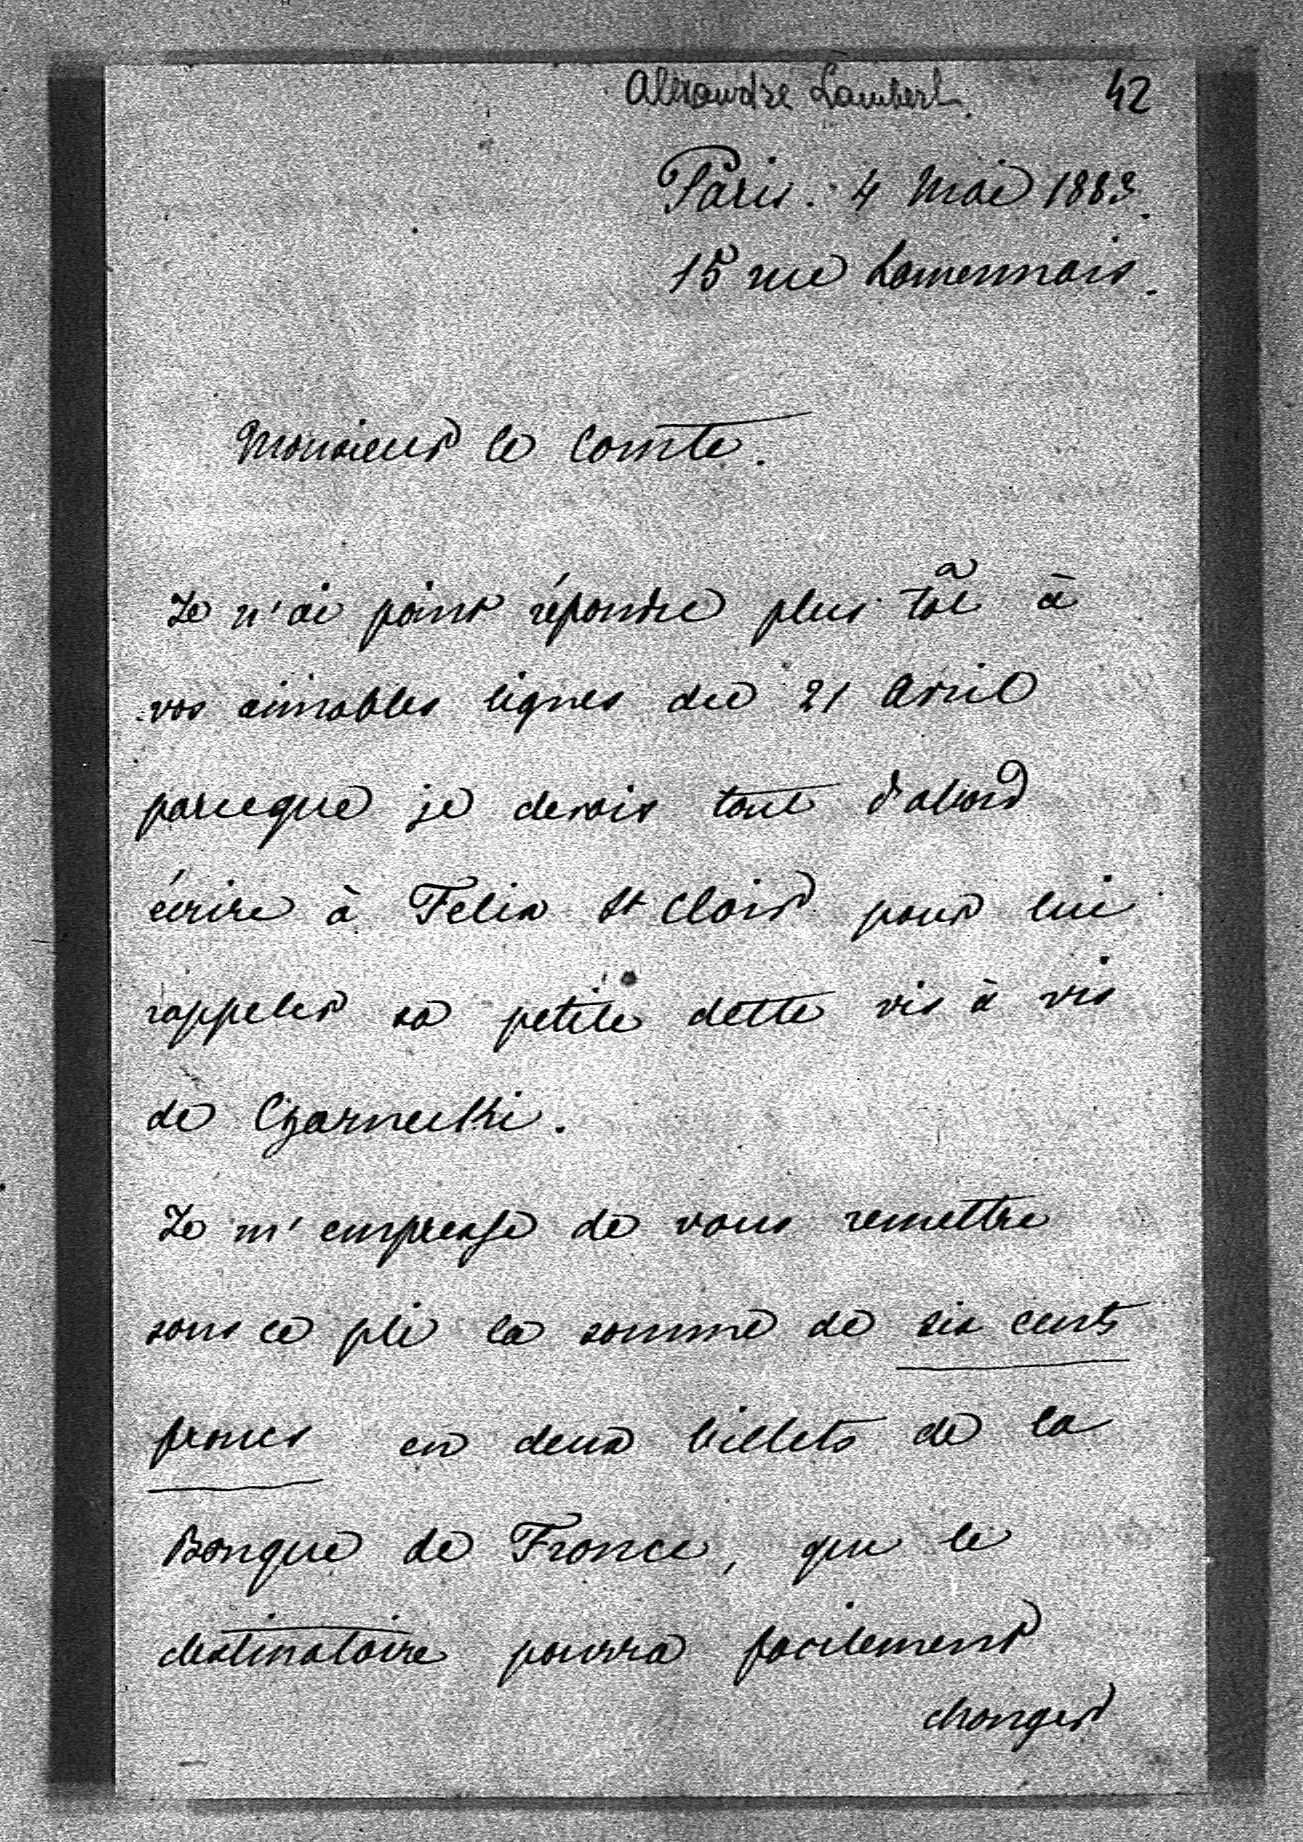 Alexandre Lambert 42
Paris. 4 Mai 1883.
15 rue Lamennais.
Monsieur le Comte.
Je n'ai point répondre plus tôt à
vos aimables lignes du 21 Avril
parceque je devais tout d'abord
écrire à Felix St Clair pour lui
rappeler sa petite dette vis à vis
de Czarnecki.
Je m'empresse de vous remettre
sous ce pli la somme de six cents
francs en deux billets de la
Banque de France, que le
destinataire pourra facilement
changer